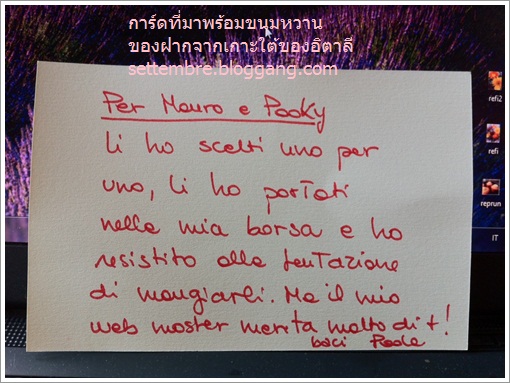 การ์ดที่มาพร้อมขนมหวาน
ของฝากจากเกาะใต้ของอิตาลี
settembre.bloggang.com
Per Mauro e Pooky
li ho scelti uno per
uno, li ho portati
nella mia borsa e ho
resistito alla tentazione
di mangiarli. Ma il mio
web master merita molto di +!
baci Paola
refi2
refi
reprun
IT